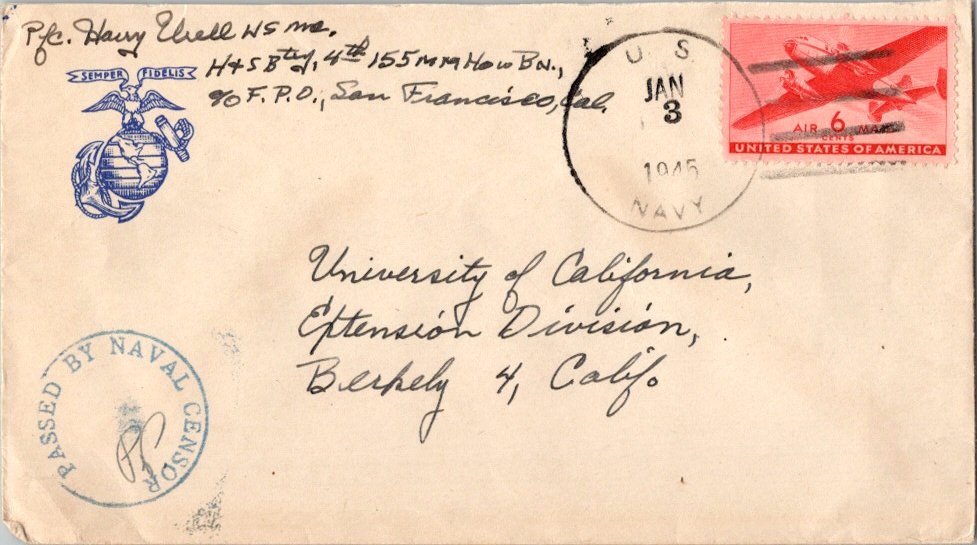 Pfc. Harry Urell USMC.
H+S Bty, 4th 155MM How Bn.,
c/o F.P.O., San Francisco, Cal.
SEMPER FIDELIS
U. S.
JAN
3
1945
NAVY
AIR 6 MAIL
CENTS
UNITED STATES OF AMERICA
University of California,
Extension Division,
Berkely 4, Calif.
PASSED BY NAVAL CENSOR